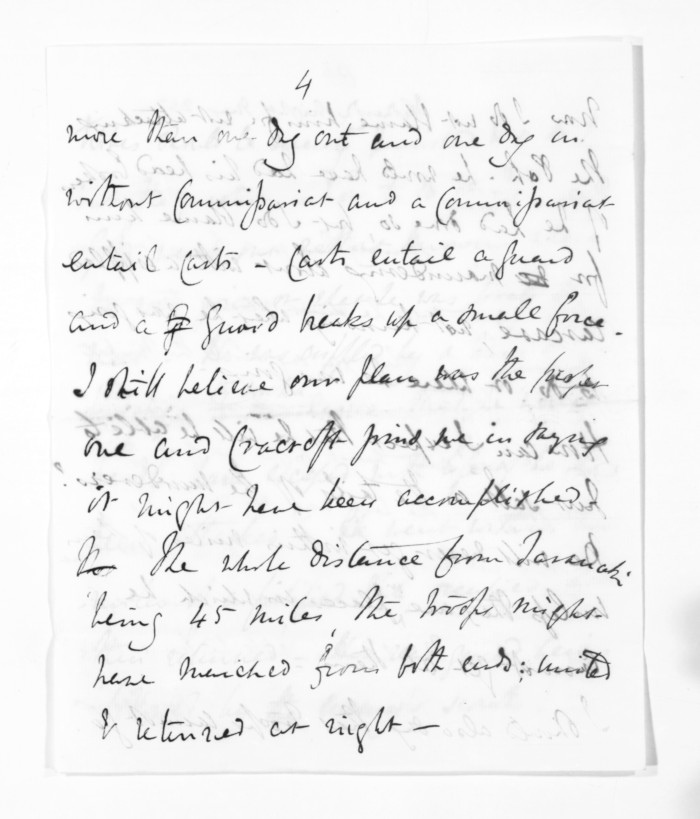 4
more than one day out and one day in
without Commissariat and a Commissariat
entail Carts - Carts entail a guard
and a guard breaks up a small force.
I still believe our plan was the proper
one and Cracroft joined me in saying
it might have been accomplished
The whole distance from Taranaki
being 45 miles, the troops might
have marched from both ends; united
& returned at night -